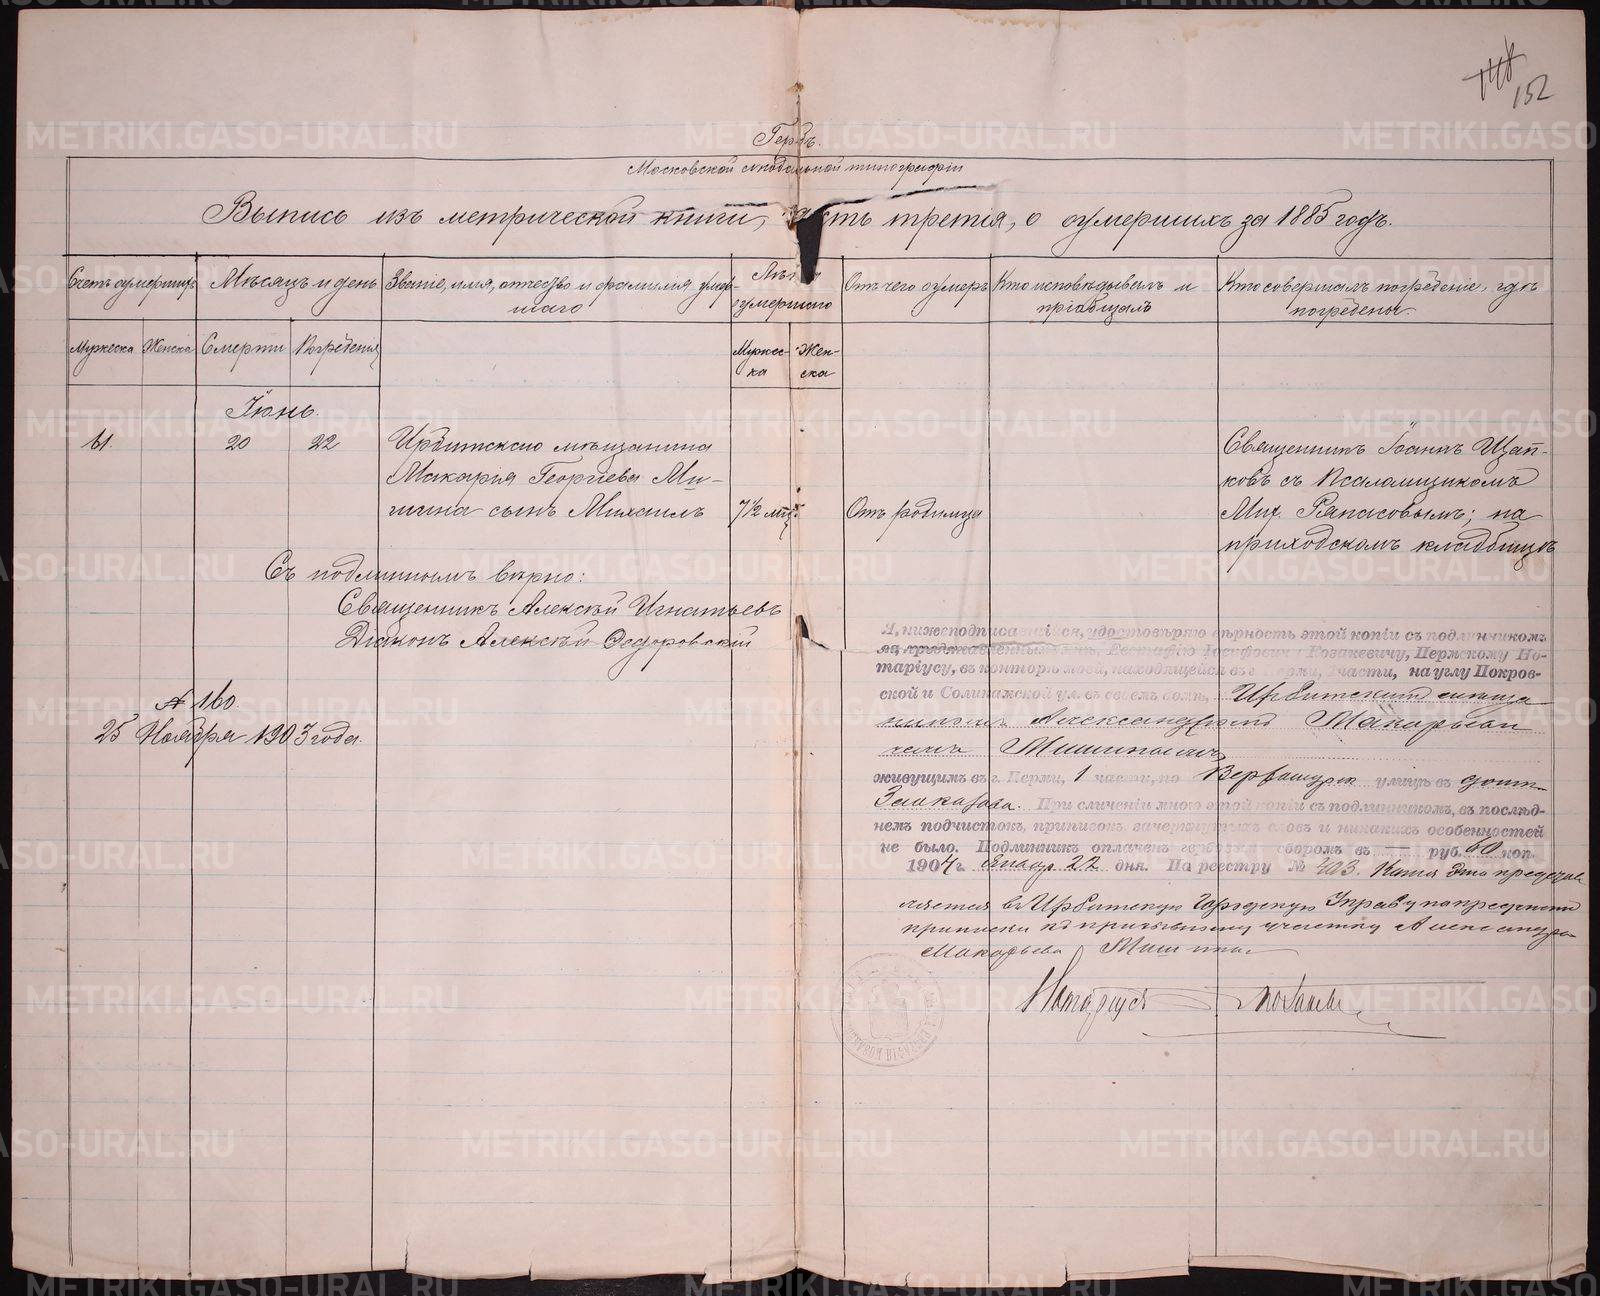 152
Гербъ.
Московской Сѵнодальной типографіи
Выпись изъ метрической книги, часть третія, о умершихъ за 1885 годъ.
Счетъ умершихъ
Мѣсяцъ и день
Званіе, имя, отчество и фамилія умер-
шаго
Лѣта
умершаго
Отъ чего умеръ
Кто исповѣдывалъ и
пріобщалъ
Кто совершалъ погребеніе, гдѣ
погребены
Мужеска
Женска
Смерти
Погребенія
Мужес-
ка
Жен-
ска
Іюнь.
61
20
22
Ирбитскаго мѣщанина
Макарія Георгіева Ми-
шина сынъ Михаилъ
7 1/2 мѣс.
Отъ родимца
Священникъ Іоаннъ Щап-
ковъ съ Псаломщикомъ
Мих. на
приходскомъ кладбищѣ
Съ подлиннымъ вѣрно:
Священникъ Алексѣй Игнатьевъ
Діаконъ Алексѣй Федоровскій
№ 160
25 Ноября 1903 года.
Я, нижеподписавшійся, удостовѣряю вѣрность этой копіи съ подлинникомъ
Іосифовичу Новакевичу, Пермскому Но-
таріусу, въ конторѣ моей, находящейся въ г. Перми, части, на углу Покров-
ской и Соликамской ул. въ своемъ домѣ, Ирбитскимъ мѣща
ниномъ Александромъ Макарьеви
чемъ Мишинымъ,
живущимъ въ г. Перми, 1 части, по улицѣ въ домѣ
При сличеніи мною этой копіи съ подлинникомъ, въ послѣд-
немъ подчистокъ, приписокъ, зачеркнутыхъ словъ и никакихъ особенностей
не было. Подлинникъ оплаченъ гербовымъ сборомъ въ — руб. 60 коп.
1904 г. Января 22 дня. По реестру № 403. Копія эта представ
ляется въ Ирбитскую Городскую Управу на предметъ
приписки къ призывному участку Александра
Макарьева Мишина.
Нотаріусъ